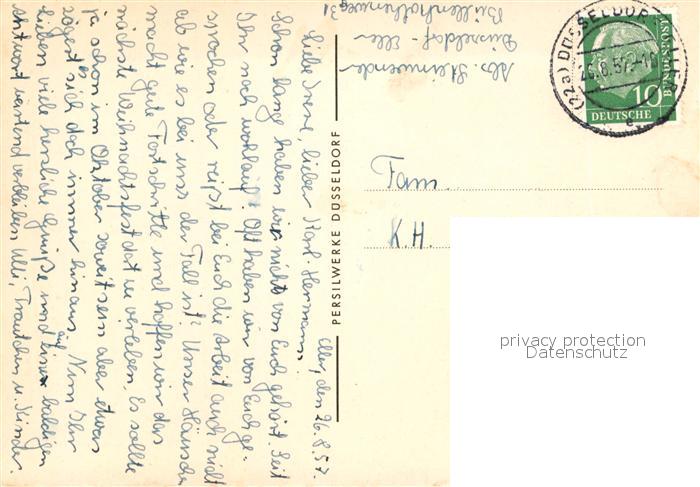 Eller, den 26.8.57.
Liebe Irene, lieber Karl-Hermann,
Schon lang haben wir nichts von Euch gehört. Seid
Ihr noch wohlauf? Oft haben wir von Euch ge-
sprochen oder reißt bei Euch die Arbeit auch nicht
ab wie es bei uns der Fall ist? Unser Häuschen
macht gute Fortschritte und hoffen wir das
nächste Weihnachtsfest dat zu verleben. Es sollte
ja schon im Oktober soweit sein aber etwas
zögert es sich doch immer hinaus. Nun Ihr
Lieben viele herzliche Grüße und auf baldigen
Antwort wartend verbleiben Willi, Trautchen u. Kinder
PERSILWERKE DÜSSELDORF
Abs. Steinwender
Düsseldorf-Eller
Büllenkothenweg 31
(22a) DÜSSELDORF
26.8.57
e
10
DEUTSCHE
BUNDESPOST
Fam.
K.H.
privacy protection
Datenschutz